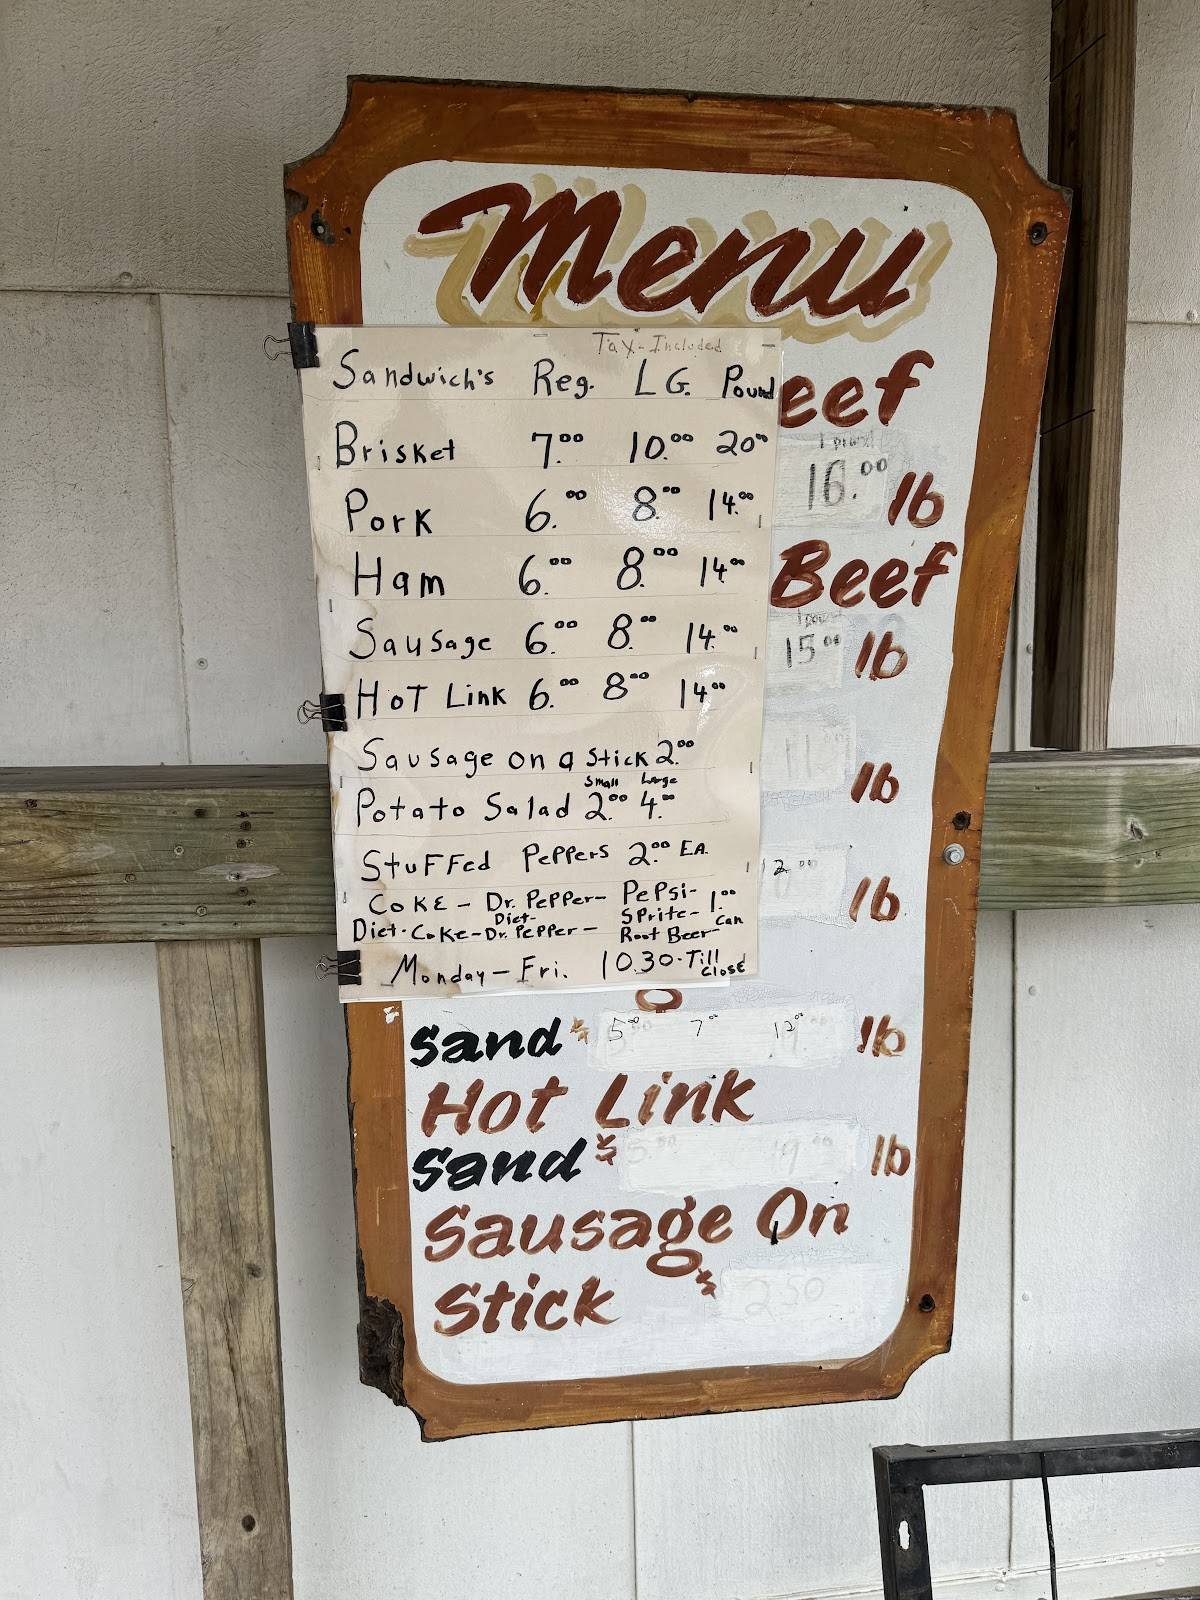 Menu
Tax-Included
Sandwich's Reg. LG. Pound
Brisket 7.00 10.00 20.00
Pork 6.00 8.00 14.00
Ham 6.00 8.00 14.00
Sausage 6.00 8.00 14.00
Hot Link 6.00 8.00 14.00
Sausage on a Stick 2.00
Small Large
Potato Salad 2.00 4.00
Stuffed Peppers 2.00 EA.
COKE - Dr. Pepper - Pepsi-
Diet- Sprite- 1.00
Diet-Coke-Dr. Pepper - Root Beer Can
Monday-Fri. 10.30-Till Close
eef
1 Pound
16.00 lb
Beef
1 pound
15.00 lb
11.00 lb
12.00 lb
Sand $ 5.00 7.00 12.00 lb
Hot Link
Sand $ lb
Sausage On
Stick $ 2.50